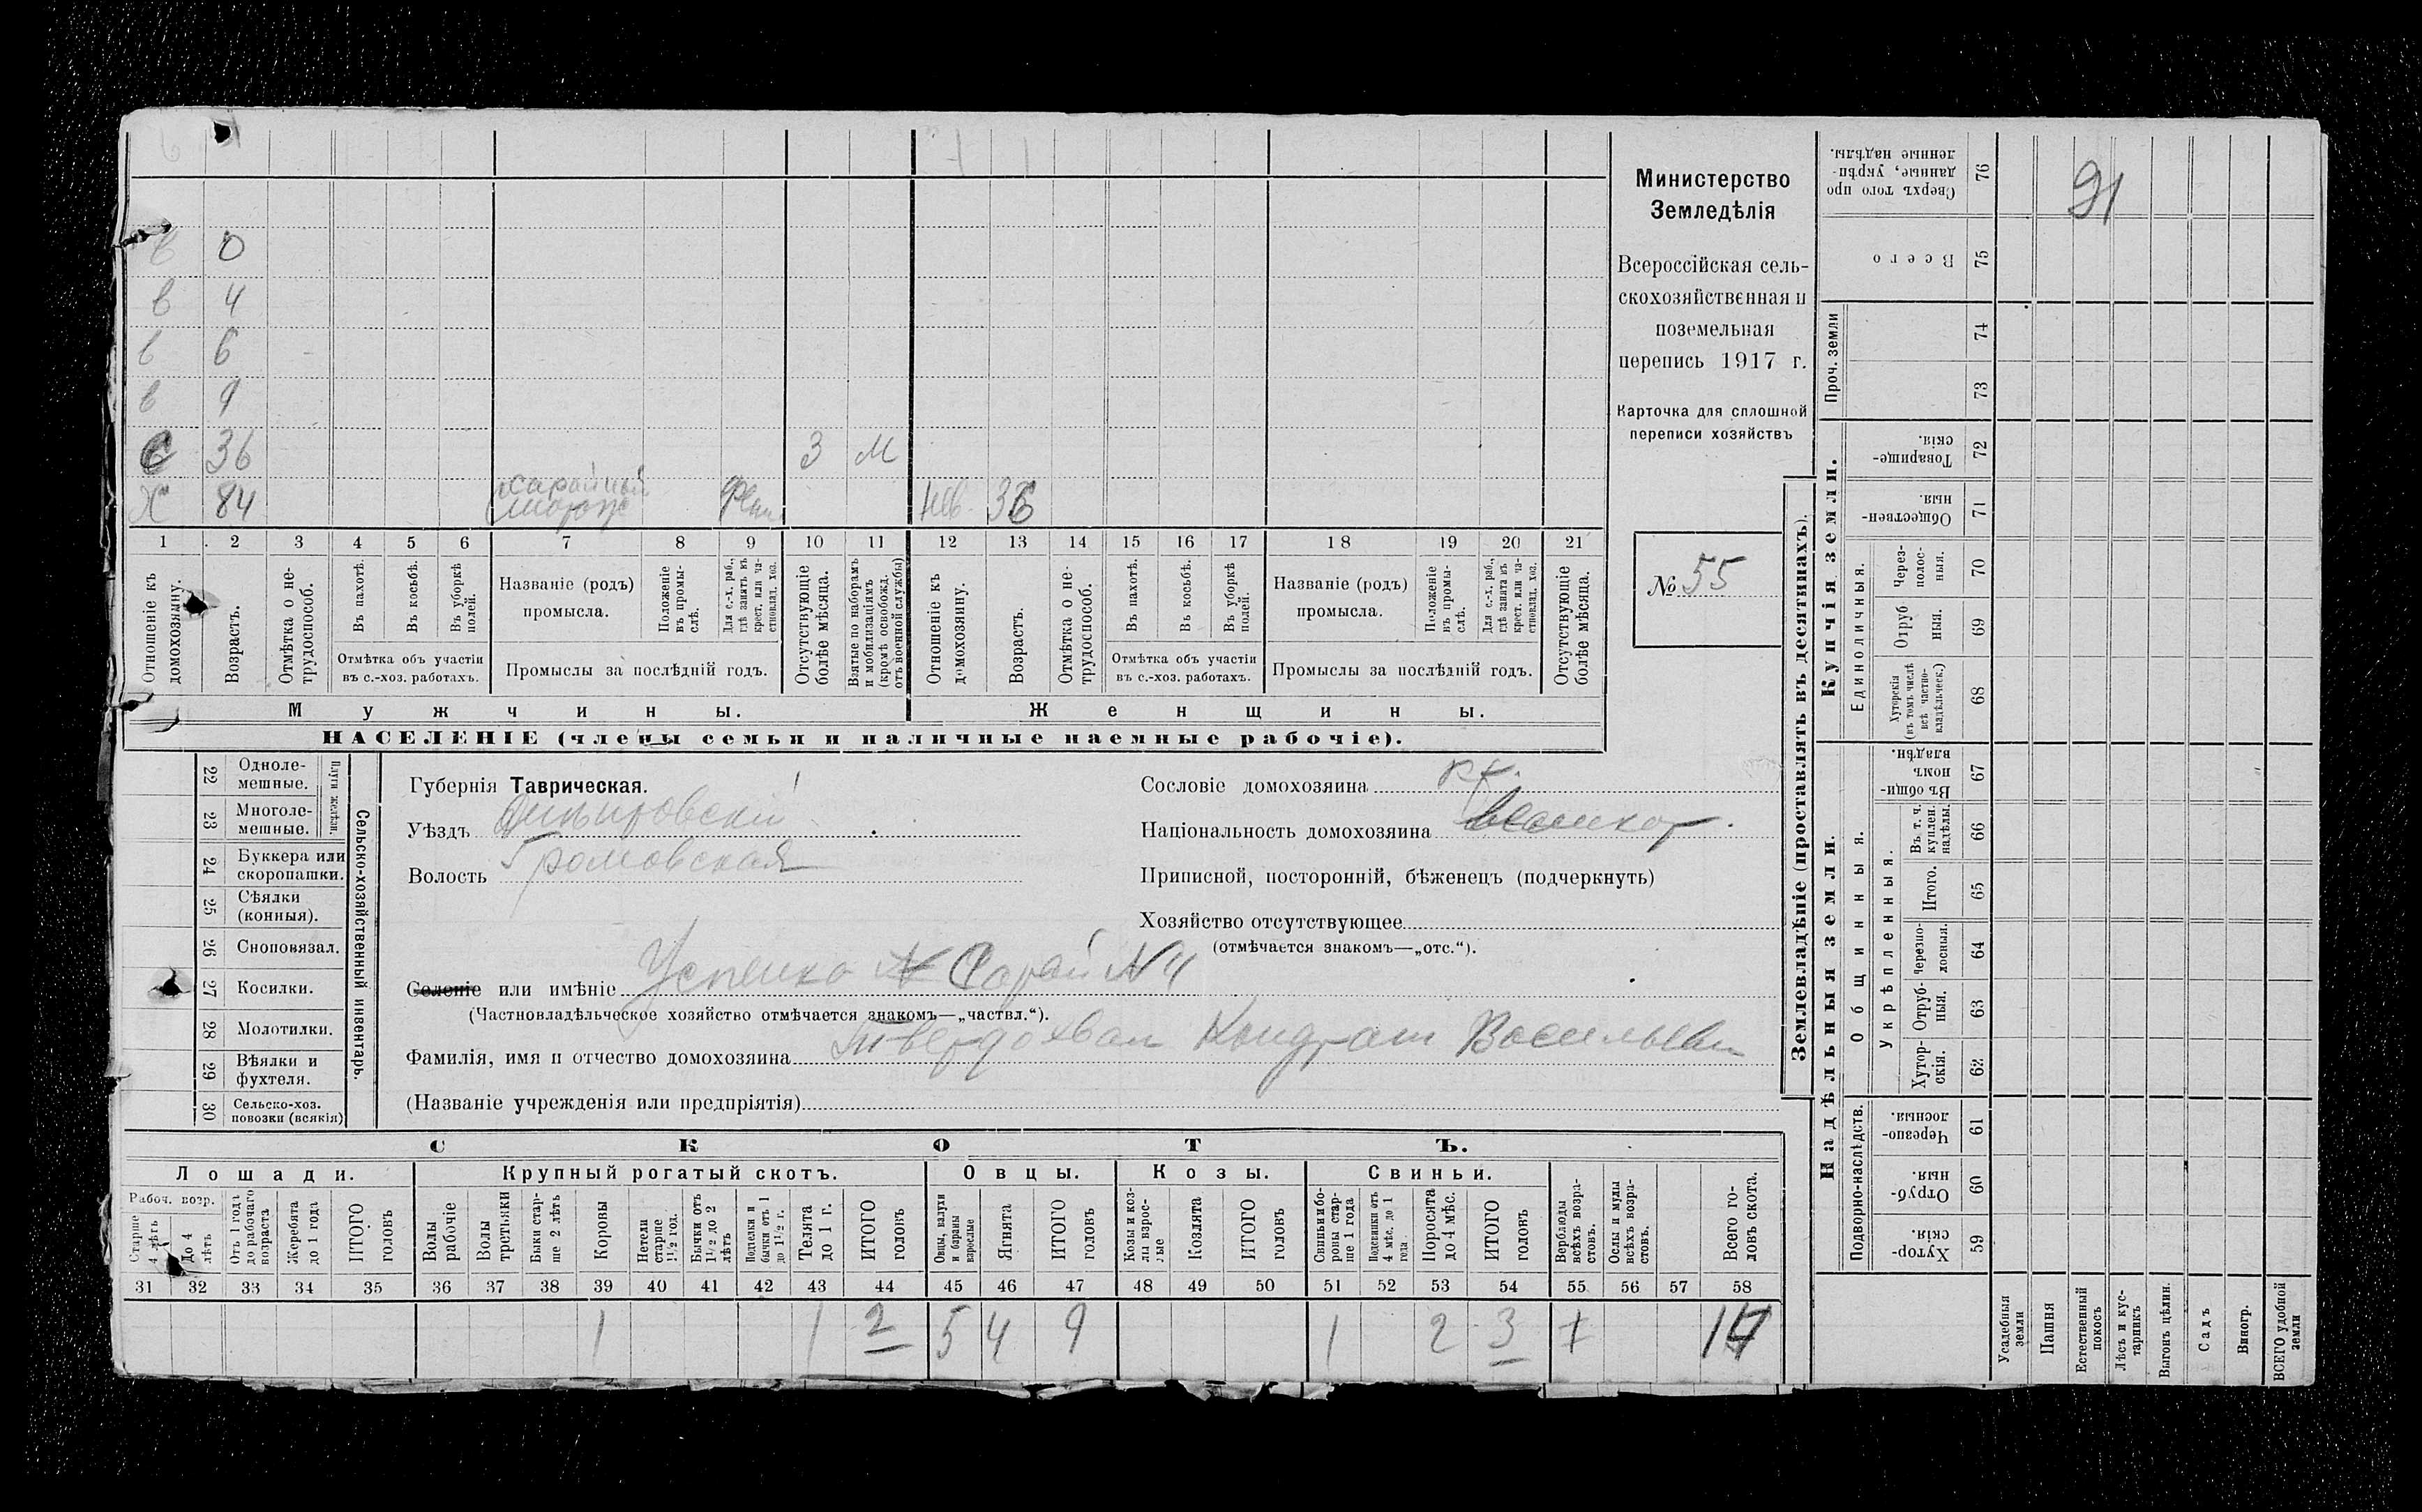 Министерство
Земледѣлія
Всероссійская сель-
скохозяйственная и
поземельная
перепись 1917 г.
Карточка для сплошной
переписи хозяйствъ
№ 55
91
в 0
в 4
в 6
в 9
с 36 3 м
Х 84 нев. 36
1 2 3 4 5 6 7 8 9 10 11 12 13 14 15 16 17 18 19 20 21
Отношеніе къ домохозяину.
Возрастъ.
Отмѣтка о не-трудоспособ.
Въ пахотѣ.
Въ косьбѣ.
Въ уборкѣ полей.
Отмѣтка объ участіи
въ с.-хоз. работахъ.
Названіе (родъ)
промысла.
Положеніе въ промы-слѣ.
Для с.-х. раб., гдѣ занятъ въ крест. или ча-стновлад. хоз.
Промыслы за послѣдній годъ.
Отсутствующіе болѣе мѣсяца.
Взятые по наборамъ и мобилизаціямъ (кромѣ освобожд. отъ военной службы)
Отношеніе къ домохозяину.
Возрастъ.
Отмѣтка о не-трудоспособ.
Въ пахотѣ.
Въ косьбѣ.
Въ уборкѣ полей.
Отмѣтка объ участіи
въ с.-хоз. работахъ.
Названіе (родъ)
промысла.
Положеніе въ промы-слѣ.
Для с.-х. раб., гдѣ занята въ крест. или ча-стновлад. хоз.
Промыслы за послѣдній годъ.
Отсутствующіе болѣе мѣсяца.
Мужчины.
Женщины.
НАСЕЛЕНІЕ (члены семьи и наличные наемные рабочіе).
22 Одноле-мешные.
23 Многоле-мешные.
Плуги желѣзн.
24 Буккера или скоропашки.
25 Сѣялки (конныя).
26 Сноповязал.
27 Косилки.
28 Молотилки.
29 Вѣялки и фухтеля.
30 Сельско-хоз. повозки (всякія)
Сельско-хозяйственный инвентарь.
Губернія Таврическая.
Уѣздъ Днѣпровскій
Волость Громовская
Сословіе домохозяина кр.
Національность домохозяина великор.
Приписной, посторонній, бѣженецъ (подчеркнуть)
Хозяйство отсутствующее
(отмѣчается знакомъ—„отс.“).
Селеніе или имѣніе Успенка Сарай №4
(Частновладѣльческое хозяйство отмѣчается знакомъ—„частвл.“).
Фамилія, имя и отчество домохозяина Твердохвал Кондрат Васильевич
(Названіе учрежденія или предпріятія)
СКОТЪ.
Лошади.
Крупный рогатый скотъ.
Овцы.
Козы.
Свиньи.
Рабоч. возр.
Старше 4 лѣтъ
До 4 лѣтъ
Отъ 1 года до рабочаго возраста
Жеребята до 1 года
ИТОГО головъ
Волы рабочіе
Волы третьяки
Быки стар-ше 2 лѣтъ
Коровы
Нетели старше 1½ год.
Бычки отъ 1½ до 2 лѣтъ
Подтелки и бычки отъ 1 до 1½ г.
Телята до 1 г.
ИТОГО головъ
Овцы, валухи и бараны взрослые
Ягнята
ИТОГО головъ
Козы и коз-лы взрос-лые
Козлята
ИТОГО головъ
Свиньи и бо-ровы стар-ше 1 года
Подсвинки отъ 4 мѣс. до 1 года
Поросята до 4 мѣс.
ИТОГО головъ
Верблюды всѣхъ возра-стовъ.
Ослы и мулы всѣхъ возра-стовъ.
Всего го-ловъ скота.
31 32 33 34 35 36 37 38 39 40 41 42 43 44 45 46 47 48 49 50 51 52 53 54 55 56 57 58
1 1 2 5 4 9 1 2 3 14
Землевладѣніе (проставлять въ десятинахъ).
Купчія земли.
Надѣльныя земли.
Сверхъ того про данные, укрѣп-ленные надѣлы. 76
Всего 75
Проч. земли 74
73
Товарище-скія. 72
Обществен-ныя. 71
Единоличныя.
Через-полос-ныя. 70
Отруб ныя. 69
Хуторскія (въ томъ числѣ всѣ частно-владѣльческ.) 68
Общинныя.
Въ общи-номъ владѣн. 67
Укрѣпленныя.
Въ т. ч. куплен. надѣлы. 66
Итого. 65
Черезпо-лосныя. 64
Отруб-ныя. 63
Хутор-скія. 62
Подворно-наслѣдств.
Черезпо-лосныя. 61
Отруб-ныя. 60
Хутор-скія. 59
Усадебныя земли
Пашня
Естественный покосъ
Лѣсъ и кус-тарникъ
Выгонъ цѣлин.
Садъ
Виногр.
ВСЕГО удобной земли